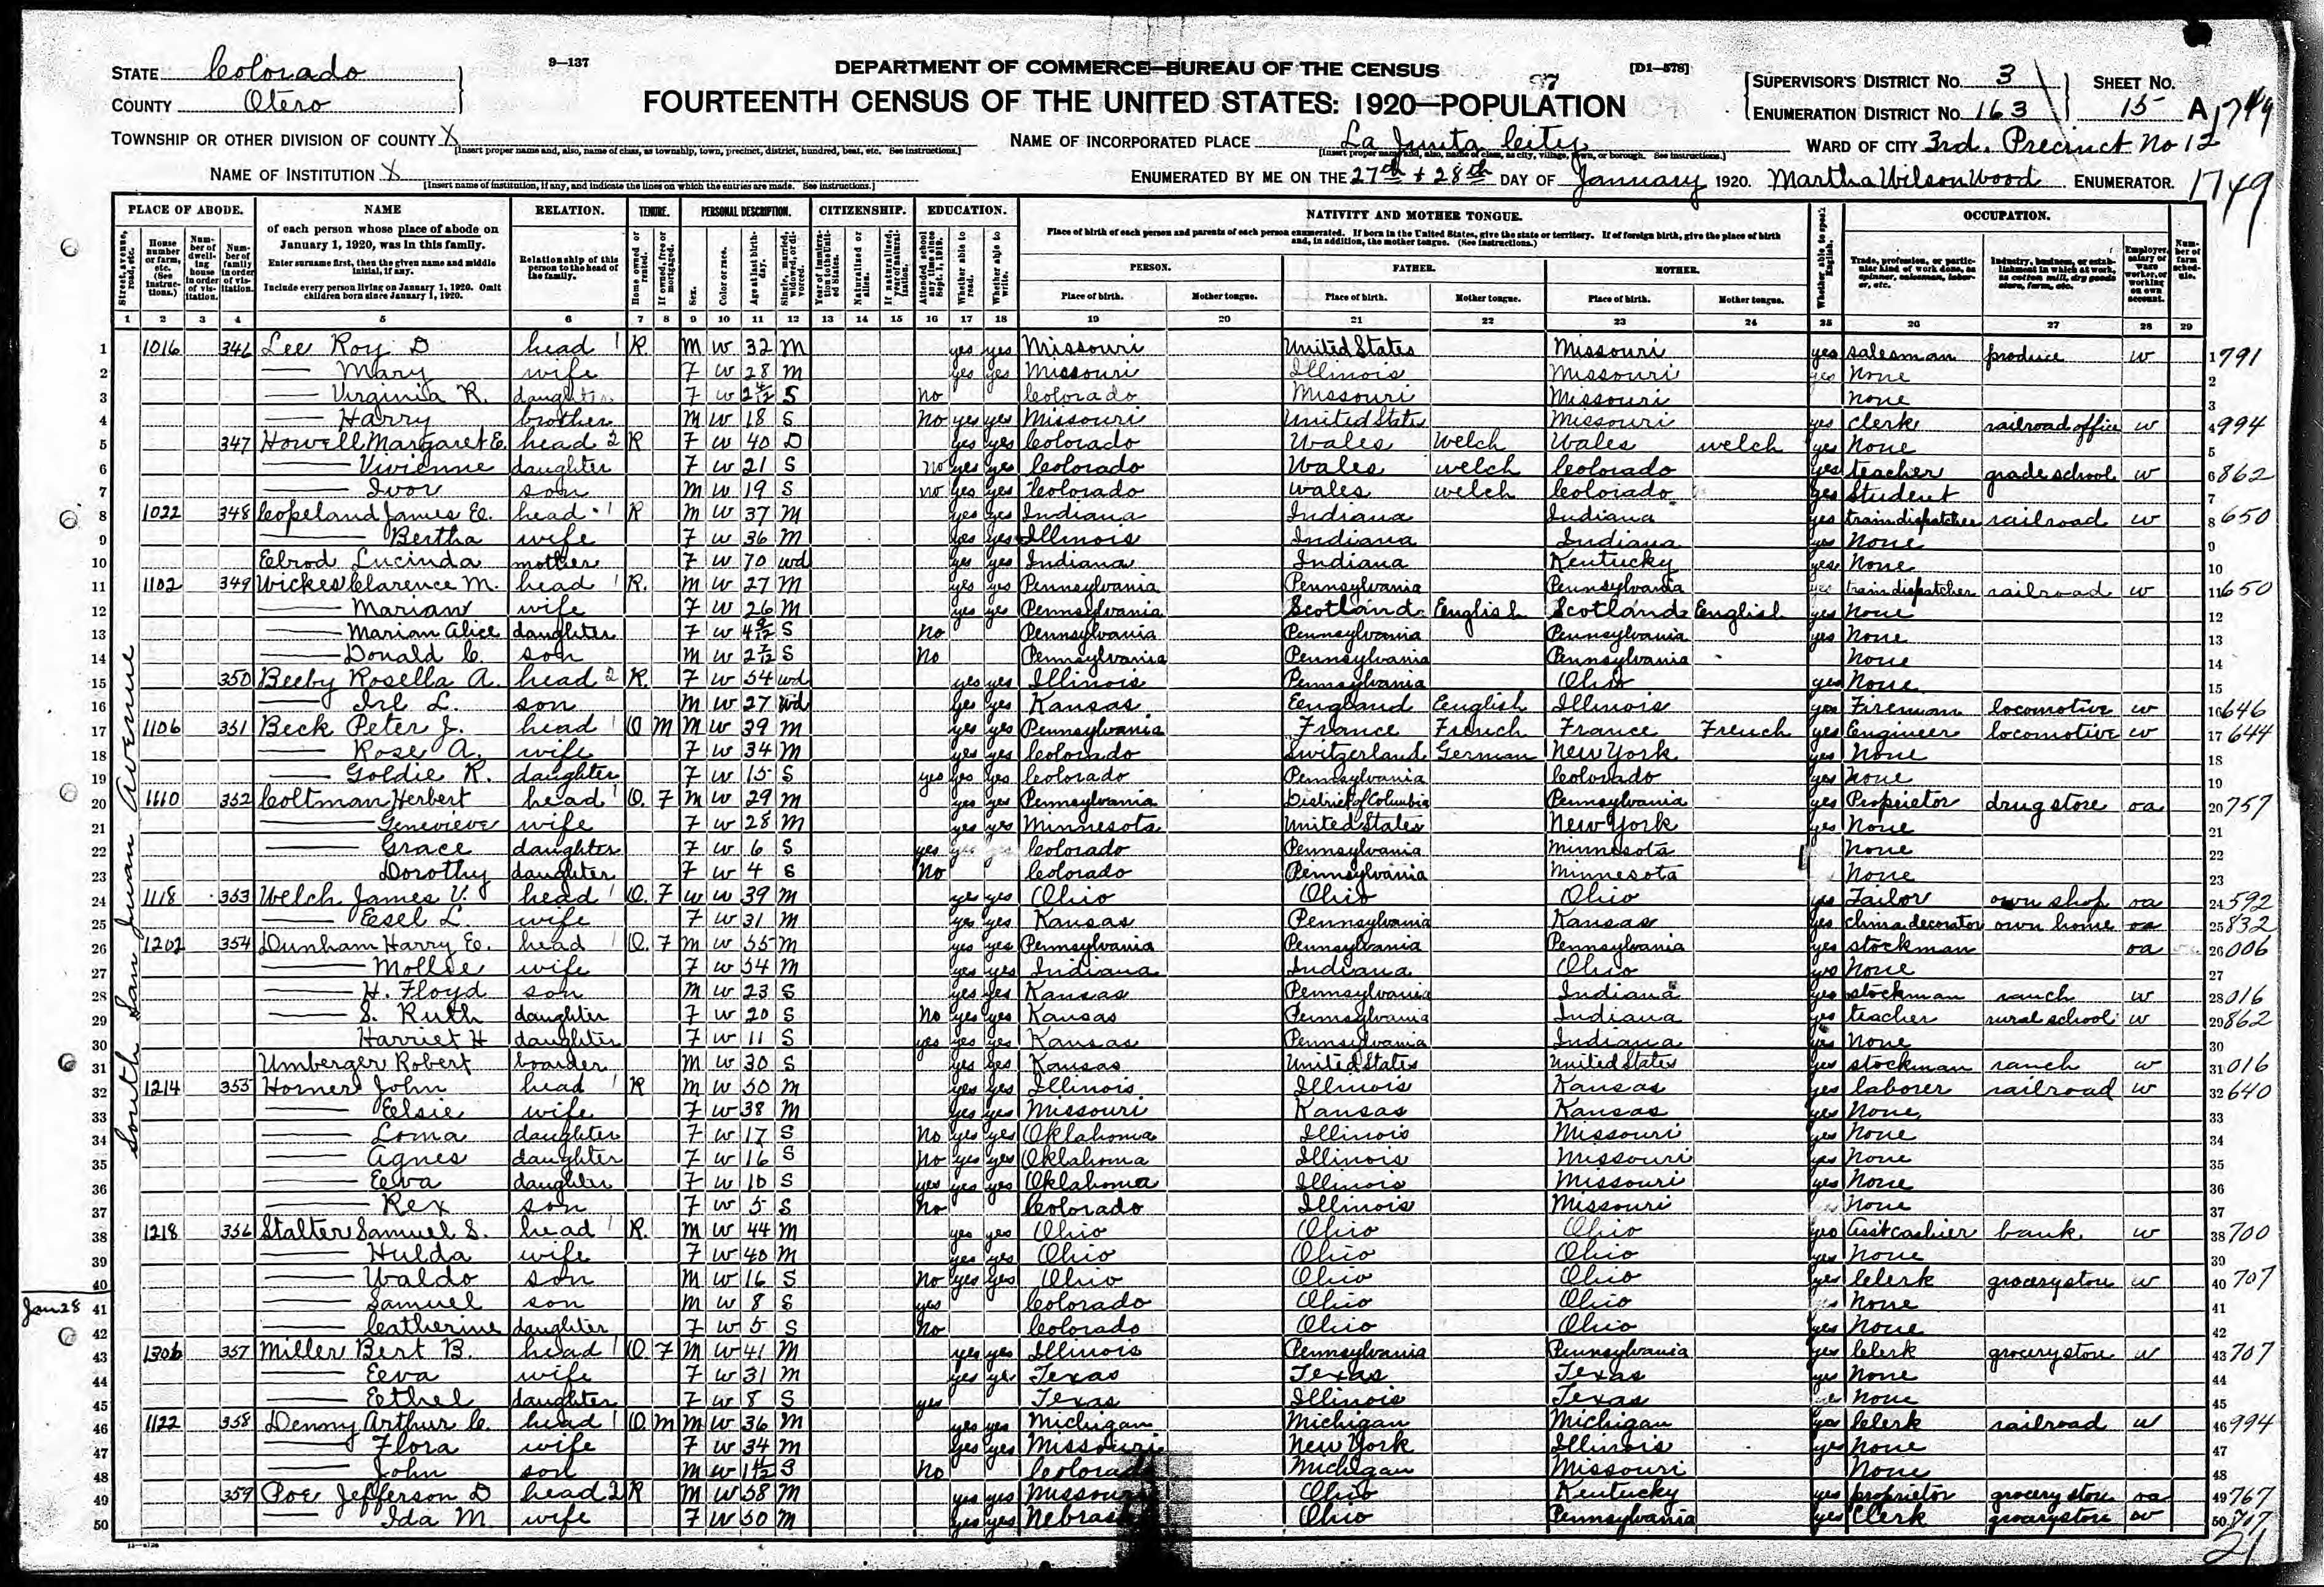 STATE Colorado
COUNTY Otero
9—137
DEPARTMENT OF COMMERCE—BUREAU OF THE CENSUS
[D1—578]
97
FOURTEENTH CENSUS OF THE UNITED STATES: 1920—POPULATION
SUPERVISOR'S DISTRICT No. 3
SHEET No.
ENUMERATION DISTRICT No. 163
15 A
1749
TOWNSHIP OR OTHER DIVISION OF COUNTY X
[Insert proper name and, also, name of class, as township, town, precinct, district, hundred, beat, etc. See instructions.]
NAME OF INCORPORATED PLACE La Junta City
[Insert proper name and, also, name of class, as city, village, town, or borough. See instructions.]
WARD OF CITY 3rd. Precinct No 12
NAME OF INSTITUTION X
[Insert name of institution, if any, and indicate the lines on which the entries are made. See instructions.]
ENUMERATED BY ME ON THE 27th + 28th DAY OF January 1920. Martha Wilson Wood ENUMERATOR.
1749
PLACE OF ABODE. NAME RELATION. TENURE. PERSONAL DESCRIPTION. CITIZENSHIP. EDUCATION. NATIVITY AND MOTHER TONGUE. OCCUPATION.
of each person whose place of abode on January 1, 1920, was in this family.
Enter surname first, then the given name and middle initial, if any.
Include every person living on January 1, 1920. Omit children born since January 1, 1920.
Relationship of this person to the head of the family.
Place of birth of each person and parents of each person enumerated. If born in the United States, give the state or territory. If of foreign birth, give the place of birth and, in addition, the mother tongue. (See instructions.)
PERSON. FATHER. MOTHER.
Place of birth. Mother tongue. Place of birth. Mother tongue. Place of birth. Mother tongue.
1 2 3 4 5 6 7 8 9 10 11 12 13 14 15 16 17 18 19 20 21 22 23 24 25 26 27 28 29
South San Juan Avenue
1 1016 346 Lee Roy D head 1 R M W 32 M yes yes Missouri United States Missouri yes salesman produce w 1 791
2 — Mary wife F W 28 M yes yes Missouri Illinois Missouri yes None 2
3 — Virginia R. daughter F W S no Colorado Missouri Missouri None 3
4 — Harry brother M W 18 S No yes yes Missouri United States Missouri yes clerk railroad office w 4 994
5 347 Howell Margaret E. head 2 R F W 40 D yes yes Colorado Wales Welch Wales Welch yes None 5
6 — Vivienne daughter F W 21 S no yes yes Colorado Wales Welch Colorado yes teacher grade school w 6 862
7 — Ivor son M W 19 S no yes yes Colorado Wales Welch Colorado yes Student 7
8 1022 348 Copeland James E. head 1 R M W 37 M yes yes Indiana Indiana Indiana yes train dispatcher railroad w 8 650
9 — Bertha wife F W 36 M yes yes Illinois Indiana Indiana yes None 9
10 Elrod Lucinda mother F W 70 wd yes yes Indiana Indiana Kentucky yes None 10
11 1102 349 Wickes Clarence M. head 1 R. M W 27 M yes yes Pennsylvania Pennsylvania Pennsylvania yes train dispatcher railroad w 11 650
12 — Marian wife F W 26 M yes yes Pennsylvania Scotland English Scotland English yes None 12
13 — Marian Alice daughter F W 4 9/12 S No Pennsylvania Pennsylvania Pennsylvania yes None 13
14 — Donald C. son M W S No Pennsylvania Pennsylvania Pennsylvania None 14
15 350 Beeby Rosella A. head 2 R. F W 54 wd yes yes Illinois Pennsylvania Ohio yes None 15
16 — Irl L. son M W 27 wd yes yes Kansas England English Illinois yes Fireman locomotive w 16 646
17 1106 351 Beck Peter J. head 1 O M M W 39 M yes yes Pennsylvania France French France French yes Engineer locomotive w 17 644
18 — Rose A. wife F W 34 M yes yes Colorado Switzerland German New York yes None 18
19 — Goldie R. daughter F W 15 S yes yes yes Colorado Pennsylvania Colorado yes None 19
20 1110 352 Coltman Herbert head 1 O. F M W 29 M yes yes Pennsylvania District of Columbia Pennsylvania yes Proprietor drug store oa 20 757
21 — Genevieve wife F W 28 M yes yes Minnesota United States New York yes None 21
22 — Grace daughter F W 6 S yes Colorado Pennsylvania Minnesota None 22
23 Dorothy daughter F W 4 S No Colorado Pennsylvania Minnesota None 23
24 1118 353 Welch James V. head 1 O. F W W 39 M yes yes Ohio Ohio Ohio yes Tailor own shop oa 24 592
25 — Eesel L wife F W 31 M yes yes Kansas Pennsylvania Kansas yes china decorator own home oa 25 832
26 1202 354 Dunham Harry E. head 1 O. F M W 55 M yes yes Pennsylvania Pennsylvania Pennsylvania yes stockman oa 26 006
27 — Mollie wife F W 54 M yes yes Indiana Indiana Ohio yes None 27
28 — H. Floyd son M W 23 S yes yes Kansas Pennsylvania Indiana yes stockman ranch w 28 016
29 — S. Ruth daughter F W 20 S No yes yes Kansas Pennsylvania Indiana yes teacher rural school w 29 862
30 Harriet H daughter F W 11 S yes yes yes Kansas Pennsylvania Indiana yes None 30
31 Umberger Robert boarder M W 30 S yes yes Kansas United States United States yes stockman ranch w 31 016
32 1214 355 Horner John head 1 R M W 50 M yes yes Illinois Illinois Kansas yes laborer railroad w 32 640
33 — Elsie wife F W 38 M yes yes Missouri Kansas Kansas yes None 33
34 — Loma daughter F W 17 S No yes yes Oklahoma Illinois Missouri yes None 34
35 — Agnes daughter F W 16 S No yes yes Oklahoma Illinois Missouri yes None 35
36 — Eeva daughter F W 10 S yes yes yes Oklahoma Illinois Missouri yes None 36
37 — Rex son F W 5 S No Colorado Illinois Missouri None 37
38 1218 356 Stalter Samuel S. head 1 R. M W 44 M yes yes Ohio Ohio Ohio yes Asst cashier bank w 38 700
39 — Hulda wife F W 40 M yes yes Ohio Ohio Ohio yes None 39
40 — Waldo son M W 16 S No yes yes Ohio Ohio Ohio yes Clerk grocery store w 40 707
Jan 28
41 — Samuel son M W 8 S yes Colorado Ohio Ohio yes None 41
42 — Catherine daughter F W 5 S No Colorado Ohio Ohio yes None 42
43 1306 357 Miller Bert B. head 1 O F M W 41 M yes yes Illinois Pennsylvania Pennsylvania yes Clerk grocery store w 43 707
44 — Eeva wife F W 31 M yes yes Texas Texas Texas yes None 44
45 — Ethel daughter F W 8 S yes Texas Illinois Texas yes None 45
46 1122 358 Denny Arthur C. head 1 O M M W 36 M yes yes Michigan Michigan Michigan yes Clerk railroad w 46 994
47 — Flora wife F W 34 M yes yes Missouri New York Illinois yes None 47
48 — John son M W S No Colorado Michigan Missouri None 48
49 359 Poe Jefferson D head 2 R M W 58 M yes yes Missouri Ohio Kentucky yes proprietor grocery store oa 49 767
50 — Ida M. wife F W 50 M yes yes Nebraska Ohio Pennsylvania yes Clerk grocery store 50
21